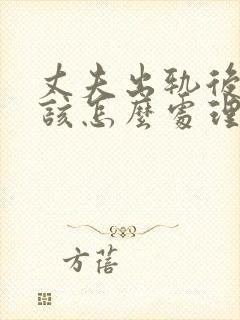 丈夫出轨後
該怎麼處理
方蓓